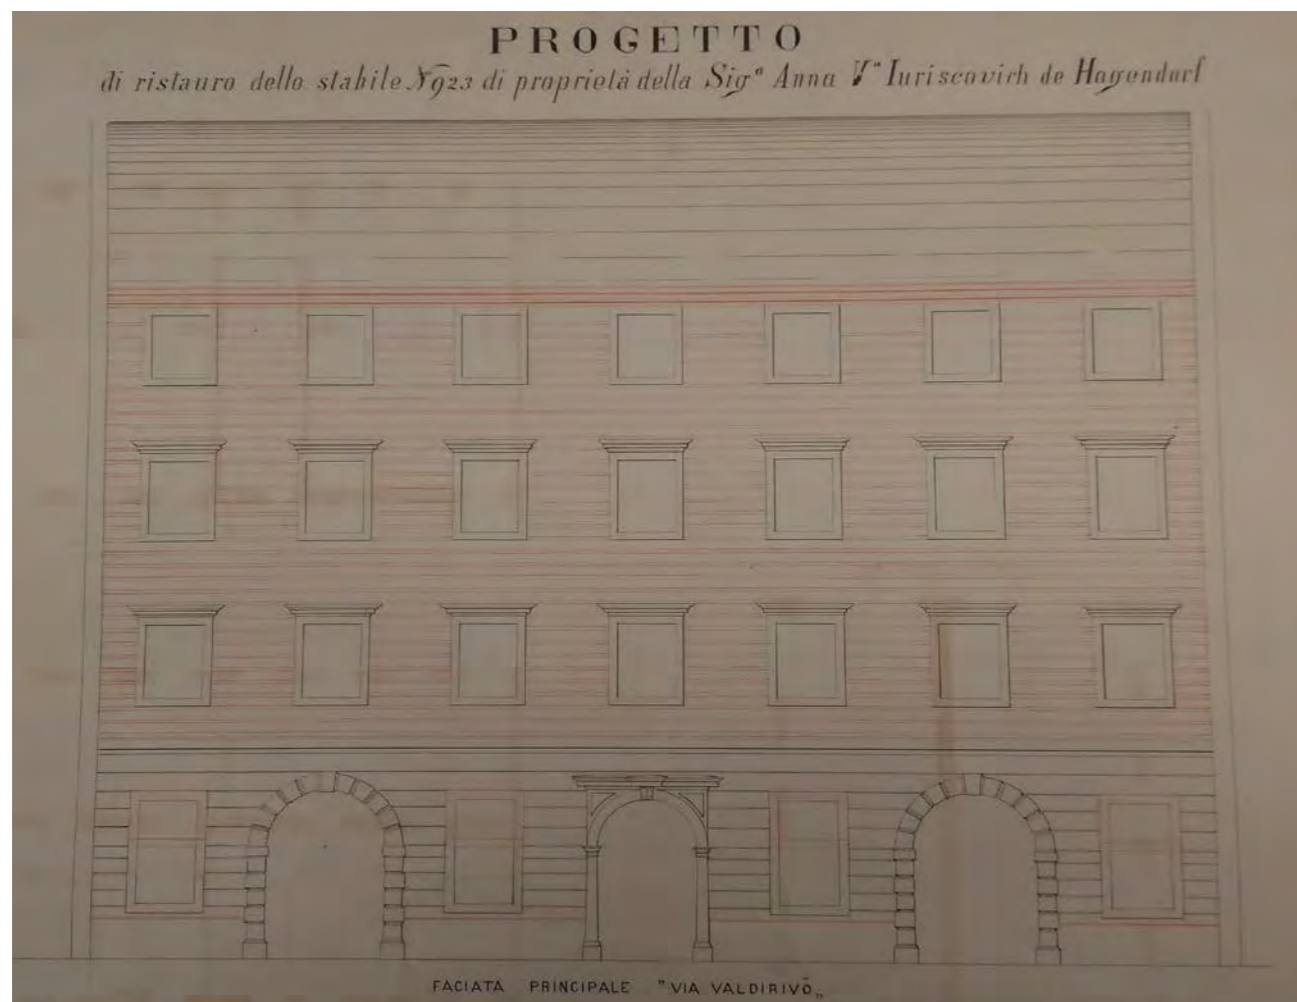 PROGETTO
di ristauro dello stabile N̅923 di proprietà della Sigᵃ Anna Vᵃ Iuriscovich de Hagendorf
FACIATA PRINCIPALE " VIA VALDIRIVŌ „